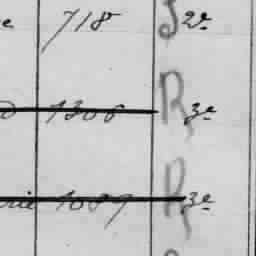 e 718 S 2e
1308 R 3e
rie 1089 R 3e